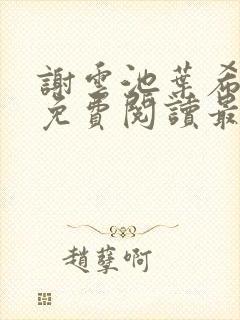 謝雲池葉希
免費閱讀最
趙孽啊